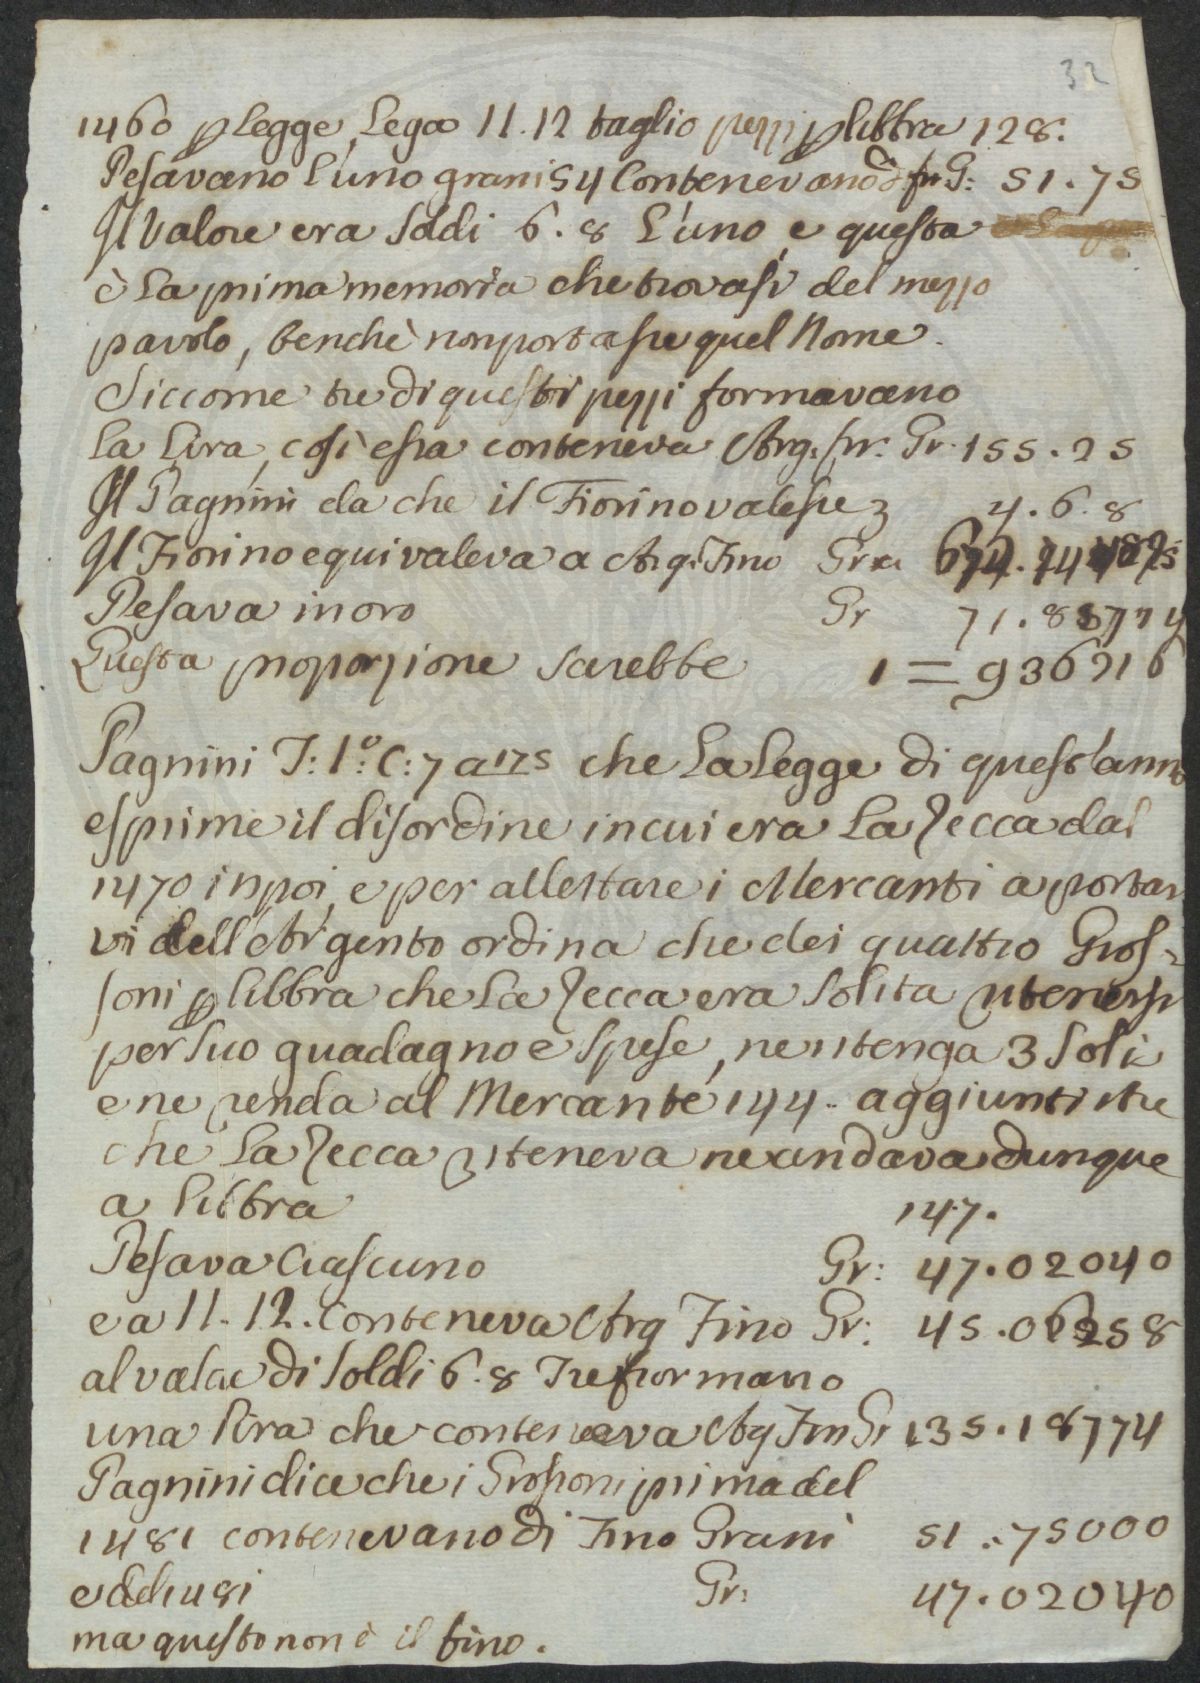 32
1460 p Legge, Lega 11.12 taglio pezzi p libbra 128.
Pesavano l'uno grani 54 Contenevano di fn. G: 51.75
Il valore era soldi 6.8 L'uno, e questa
è La prima memoria che trovasi del mezzo
pavolo, benchè non portasse quel Nome.
Siccome tre di questi pezzi formavano
La Lira, così essa conteneva Arg. fin: Gr. 155.25
Il Pagnini da che il Fiorino valesse 4.6.8
Il Fiorino equivaleva a Arg. Fino Gra
Pesava in oro Gr 71.8
Questa proporzione sarebbe 1 = 936216
Pagnini T: 1.º C: 7 a 175 che La Legge di quest'anno
esprime il disordine in cui era La Zecca dal
1470 in poi, e per allettare i Mercanti a portar
vi dell'Argento ordina che dei quattro Gros-
soni p libbra che La Zecca era solita ritenersi
per suo guadagno e spese, ne ritenga 3 soli
e ne renda al Mercante 144. aggiunti i tre
che La Zecca riteneva ne andava dunque
a libbra 147.
Pesava Ciascuno Gr: 47.02040
e a 11.12. Conteneva Arg Fino Gr: 45.06258
al valore di soldi 6.8 Tre formano
una Lira che conteneva Arg Fin Gr 135.18774
Pagnini dice che i Grossoni prima del
1481 contenevano di Fino Grani 51.75000
e del 1481 Gr: 47.02040
ma questo non è il fino.